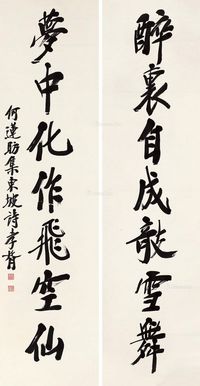 醉裏自成雪舞
夢中化作飛空仙
何蓮舫集東坡詩 孝胥